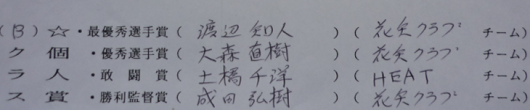 (B)☆・最優秀選手賞( 渡辺知人 )( 花矢クラブ チーム)
ク 個・優秀選手賞( 大森直樹 )( 花矢クラブ チーム)
ラ 人・敢闘賞( 土橋千洋 )( HEAT チーム)
ス 賞・勝利監督賞( 成田弘樹 )( 花矢クラブ チーム)